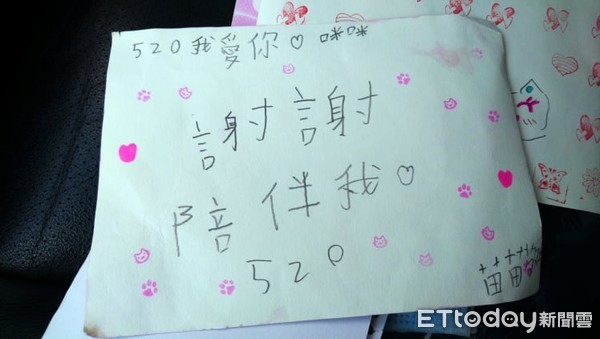 520我愛你♡ 咪咪
謝謝
陪伴我♡
520
苗苗
ETtoday新聞雲